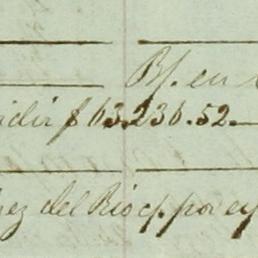 Bf. en
idir $ 63.236.52.
hez del Rio cp. por